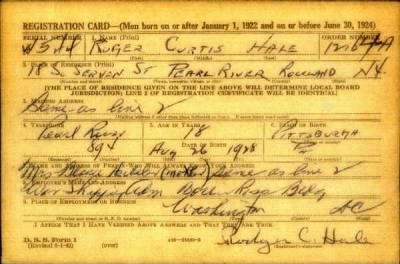 REGISTRATION CARD—(Men born on or after January 1, 1922 and on or before June 30, 1924)
SERIAL NUMBER 1. NAME (Print) ORDER NUMBER
ROGER CURTIS HALE
(First) (Middle) (Last)
2. PLACE OF RESIDENCE (Print)
18 So. ST PEARL RIVER N.Y.
(Number and street) (Town, township, village, or city) (County) (State)
[THE PLACE OF RESIDENCE GIVEN ON THE LINE ABOVE WILL DETERMINE LOCAL BOARD
JURISDICTION; LINE 2 OF REGISTRATION CERTIFICATE WILL BE IDENTICAL]
3. MAILING ADDRESS
Same as line 2
4. TELEPHONE 5. AGE IN YEARS 6. PLACE OF BIRTH
Pearl River 18 PITTSBURGH
894 DATE OF BIRTH
Aug 26
7. NAME AND ADDRESS OF PERSON WHO WILL ALWAYS KNOW YOUR ADDRESS
Mrs. (mother) Same as line 2
8. EMPLOYER'S NAME AND ADDRESS
War Bldg
Washington DC
(Number and street or R. F. D. number) (Town) (County) (State)
I AFFIRM THAT I HAVE VERIFIED ABOVE ANSWERS AND THAT THEY ARE TRUE.
D. S. S. Form 1
C. Hale